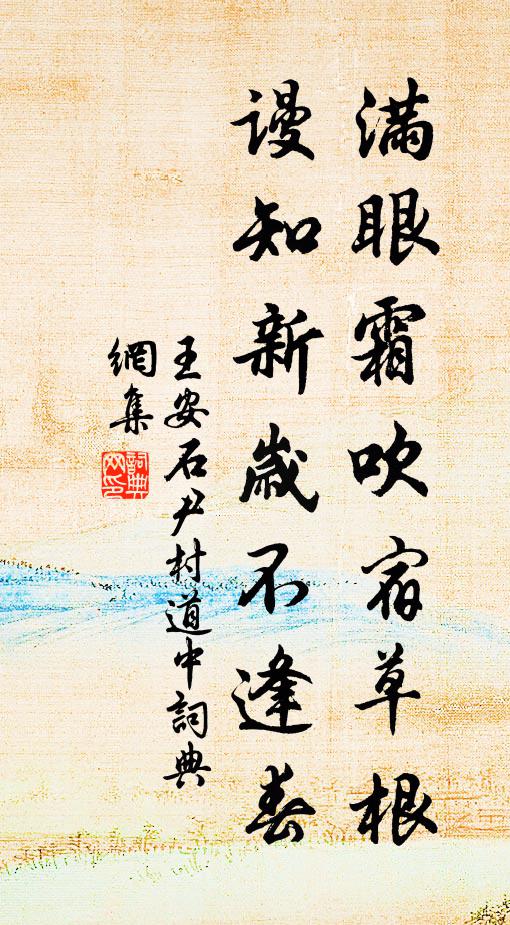 滿眼霜吹宿草根
謾知新歲不逢春
王安石尹村道中詞典
網集
詞典
网印